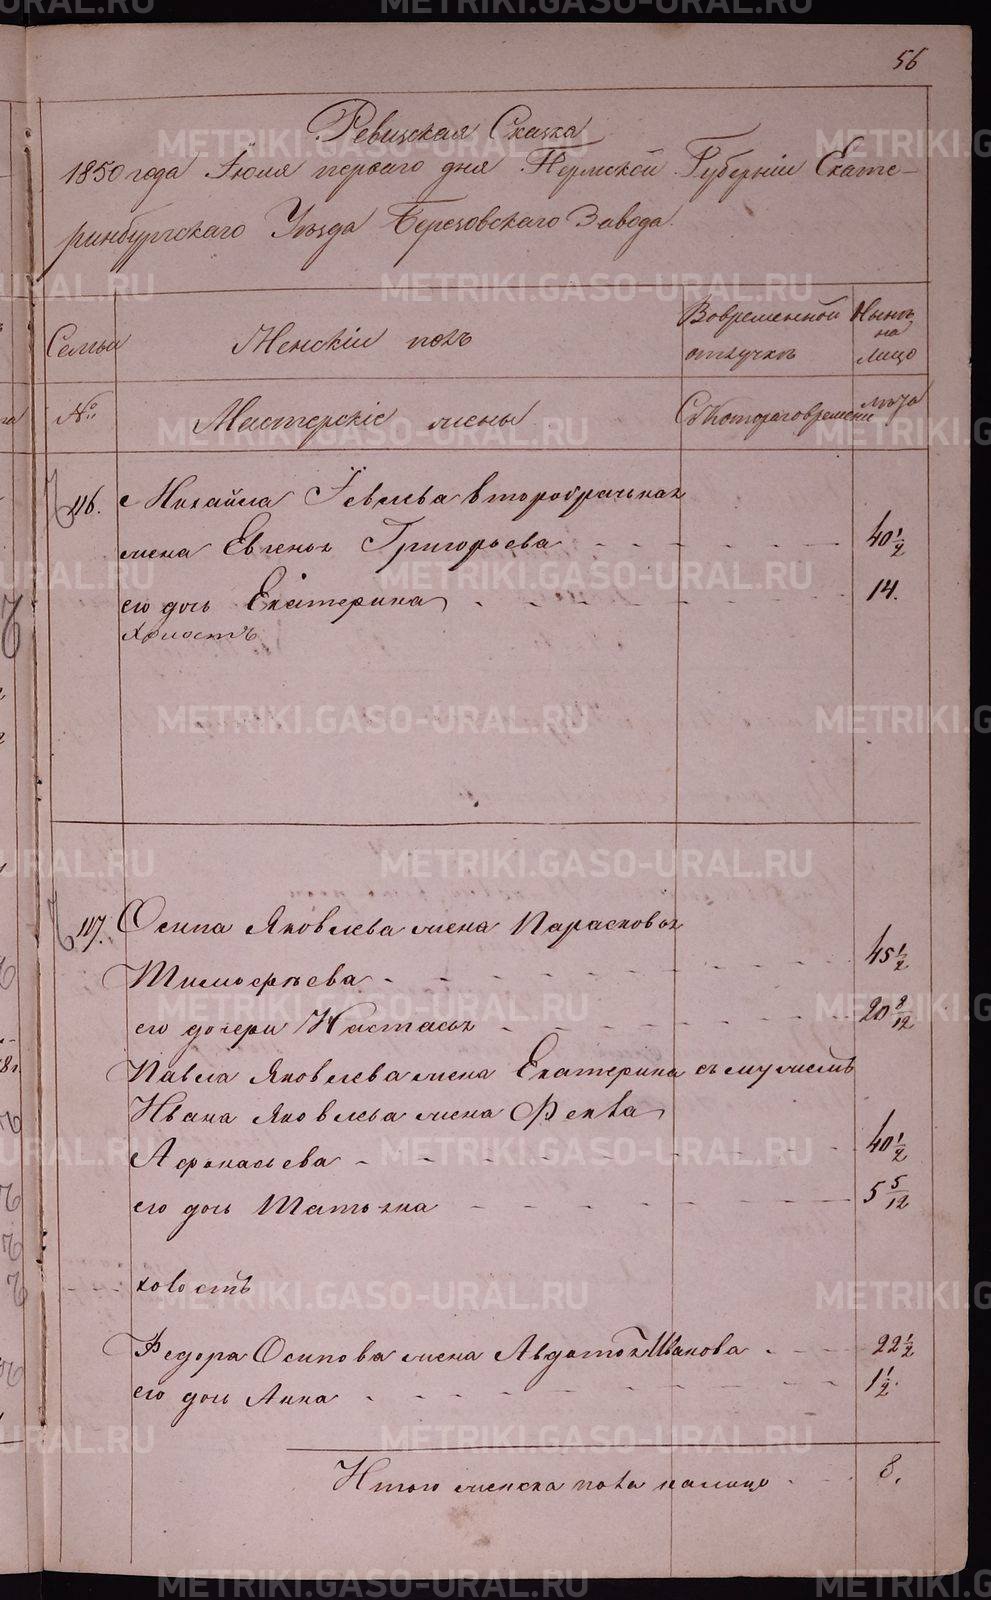 56
Ревизская Сказка
1850 года Іюля перваго дня Пермской Губерніи Екате-
ринбургскаго Уѣзда Березовскаго Завода.
Семьи
Женскій полъ
Вовременной отлучкѣ
Нынѣ на лицо
№
Мастерскіе жены
Съкотораговремени
лѣта
116.
Михайла Іевлева второбрачная
жена Евгенья Григорьева 40 1/2
его дочь Екатерина 14.
холостъ
117.
Осипа Яковлева жена Парасковья
Тимофѣева 45 1/2
его дочери Настасья 20 8/12
Павла Яковлева жена Екатерина съ мужемъ
Ивана Яковлева жена Фекла
Афонасьева 40 1/2
его дочь Татьяна 5 5/12
холостъ
Федора Осипова жена Авдотья Иванова 22 1/2
его дочь Анна 1 1/2.
Итого женска пола налицо 8.
METRIKI.GASO-URAL.RU